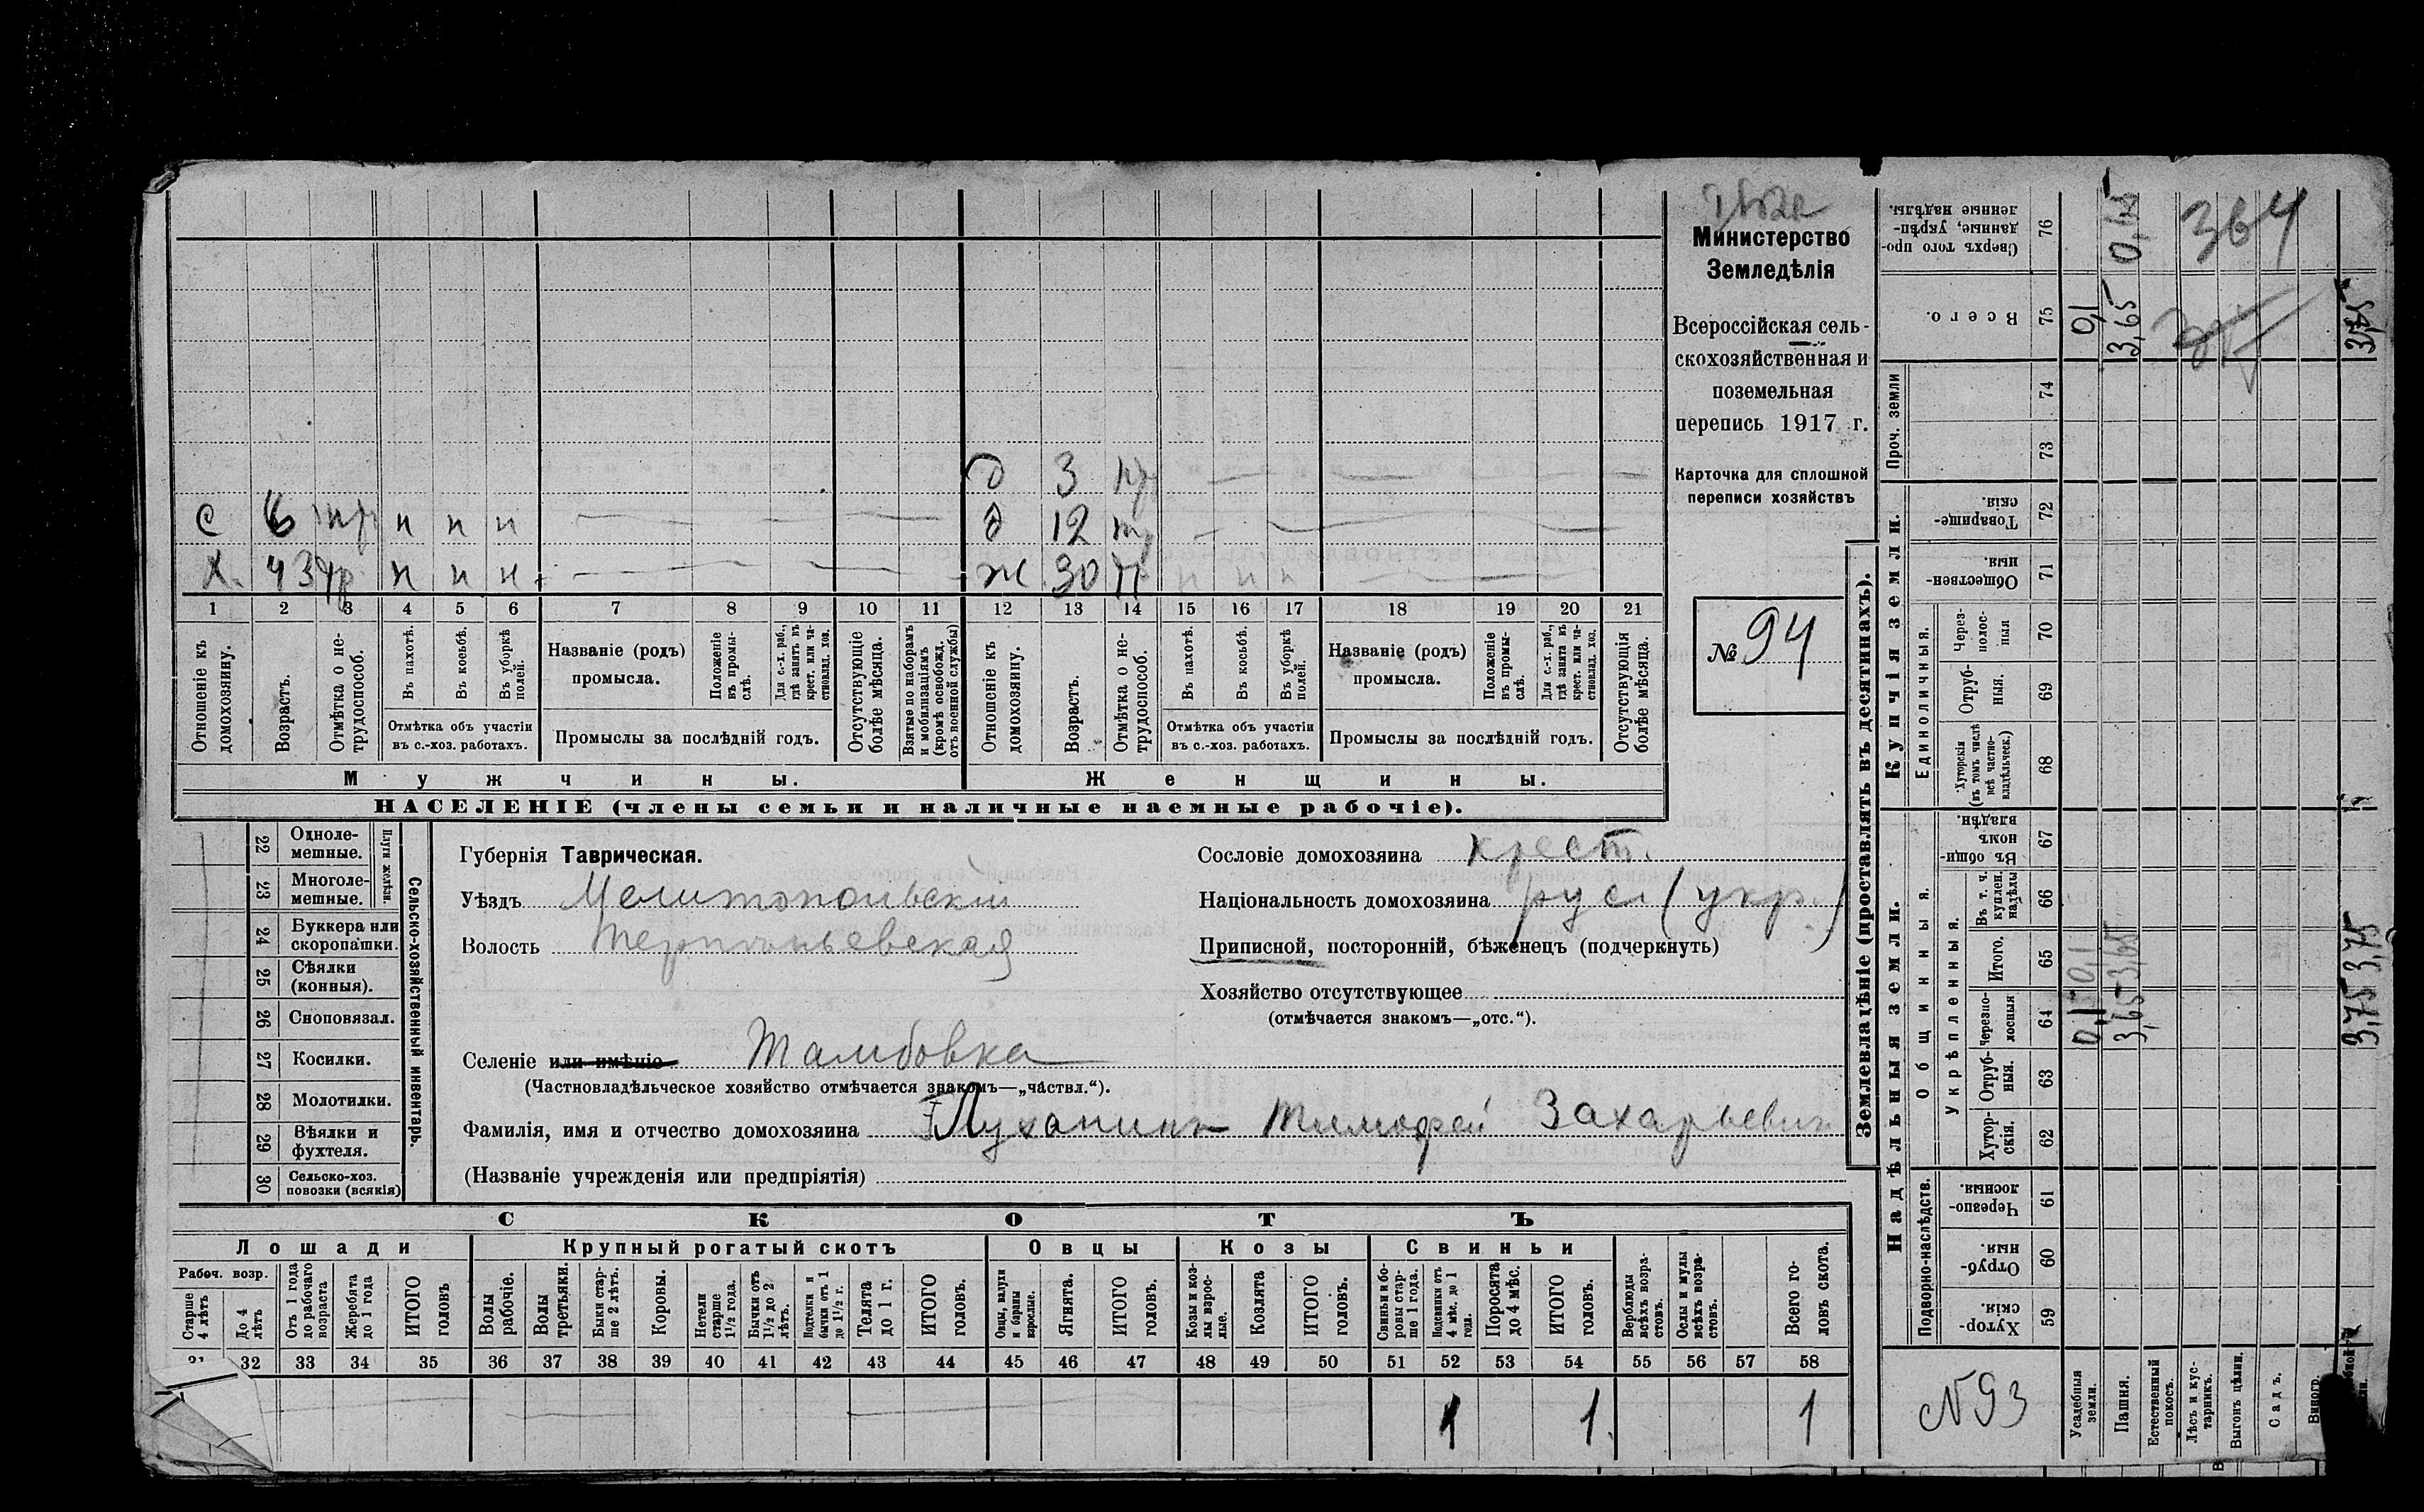 Министерство
Земледѣлія
Всероссійская сель-
скохозяйственная и
поземельная
перепись 1917 г.
Карточка для сплошной
переписи хозяйствъ
№ 94
д 3
с 6 н н н д 12
Х. 43 н н н ж 30 н н н
1 2 3 4 5 6 7 8 9 10 11 12 13 14 15 16 17 18 19 20 21
Отношеніе къ домохозяину.
Возрастъ.
Отмѣтка о не-трудоспособ.
Въ пахотѣ.
Въ косьбѣ.
Въ уборкѣ полей.
Отмѣтка объ участіи
въ с.-хоз. работахъ.
Названіе (родъ)
промысла.
Положеніе въ промы-слѣ.
Для с.-х. раб., гдѣ занятъ въ крест. или ча-стновлад. хоз.
Промыслы за послѣдній годъ.
Отсутствующіе болѣе мѣсяца.
Взятые по наборамъ и мобилизаціямъ (кромѣ освобожд. отъ военной службы)
Отношеніе къ домохозяину.
Возрастъ.
Отмѣтка о не-трудоспособ.
Въ пахотѣ.
Въ косьбѣ.
Въ уборкѣ полей.
Отмѣтка объ участіи
въ с.-хоз. работахъ.
Названіе (родъ)
промысла.
Положеніе въ промы-слѣ.
Для с.-х. раб., гдѣ занята въ крест. или ча-стновлад. хоз.
Промыслы за послѣдній годъ.
Отсутствующія болѣе мѣсяца.
Мужчины. Женщины.
НАСЕЛЕНІЕ (члены семьи и наличные наемные рабочіе).
Сельско-хозяйственный инвентарь.
Плуги желѣзн.
22 Одноле-мешные.
23 Многоле-мешные.
24 Буккера или скоропашки.
25 Сѣялки (конныя).
26 Сноповязал.
27 Косилки.
28 Молотилки.
29 Вѣялки и фухтеля.
30 Сельско-хоз. повозки (всякія)
Губернія Таврическая.
Уѣздъ Мелитопольскій
Волость Терпѣньевская
Селеніе или имѣніе Тамбовка
(Частновладѣльческое хозяйство отмѣчается знакомъ—„частвл.“).
Фамилія, имя и отчество домохозяина Луханинъ Тимофей Захарьевич
(Названіе учрежденія или предпріятія)
Сословіе домохозяина крест.
Національность домохозяина русс (укр.)
Приписной, посторонній, бѣженецъ (подчеркнуть)
Хозяйство отсутствующее
(отмѣчается знакомъ—„отс.“).
СКОТЪ
Лошади Крупный рогатый скотъ Овцы Козы Свиньи
Рабоч. возр.
Старше 4 лѣтъ
До 4 лѣтъ
Отъ 1 года до рабочаго возраста
Жеребята до 1 года
ИТОГО головъ
Волы рабочіе.
Волы третьяки.
Быки стар-ше 2 лѣтъ.
Коровы.
Нетели старше 1½ года.
Бычки отъ 1½ до 2 лѣтъ.
Подтелки и бычки отъ 1 до 1½ г.
Телята до 1 г.
ИТОГО головъ.
Овцы, валухи и бараны взрослые.
Ягнята.
ИТОГО головъ.
Козы и коз-лы взрос-лые.
Козлята
ИТОГО головъ.
Свиньи и бо-ровы стар-ше 1 года.
Подсвинки отъ 4 мѣс. до 1 года.
Поросята до 4 мѣс.
ИТОГО головъ.
Верблюды всѣхъ возра-стовъ.
Ослы и мулы всѣхъ возра-стовъ.
Всего го-ловъ скота.
31 32 33 34 35 36 37 38 39 40 41 42 43 44 45 46 47 48 49 50 51 52 53 54 55 56 57 58
1 1 1
Землевладѣніе (проставлять въ десятинахъ).
Надѣльныя земли. Купчія земли. Проч. земли
Подворно-наслѣдств.
Общинныя.
Укрѣпленныя.
Единоличныя.
Хутор-скія. 59
Отруб-ныя. 60
Черезпо-лосныя. 61
Хутор-скія. 62
Отруб-ныя. 63
Черезпо-лосныя 64
Итого. 65
Въ т. ч. куплен. надѣлы 66
Въ общи-номъ владѣн. 67
Хуторскія (въ томъ числѣ всѣ частно-владѣльческ.) 68
Отруб-ныя. 69
Через-полос-ныя 70
Обществен-ныя 71
Товарище-скія. 72
73
74
Всего. 75
Сверхъ того про-данные, укрѣп-ленные надѣлы. 76
364
№93
Усадебныя земли. 0,1 0,1 0,1
Пашня. 3,65 3,65 3,65
Естественный покосъ.
Лѣсъ и кус-тарникъ.
Выгонъ цѣлин.
Садъ.
Виногр.
3,75 3,75 3,75